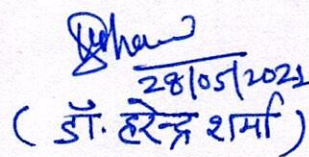 28/05/2021
( डॉ. हरेन्द्र शर्मा )